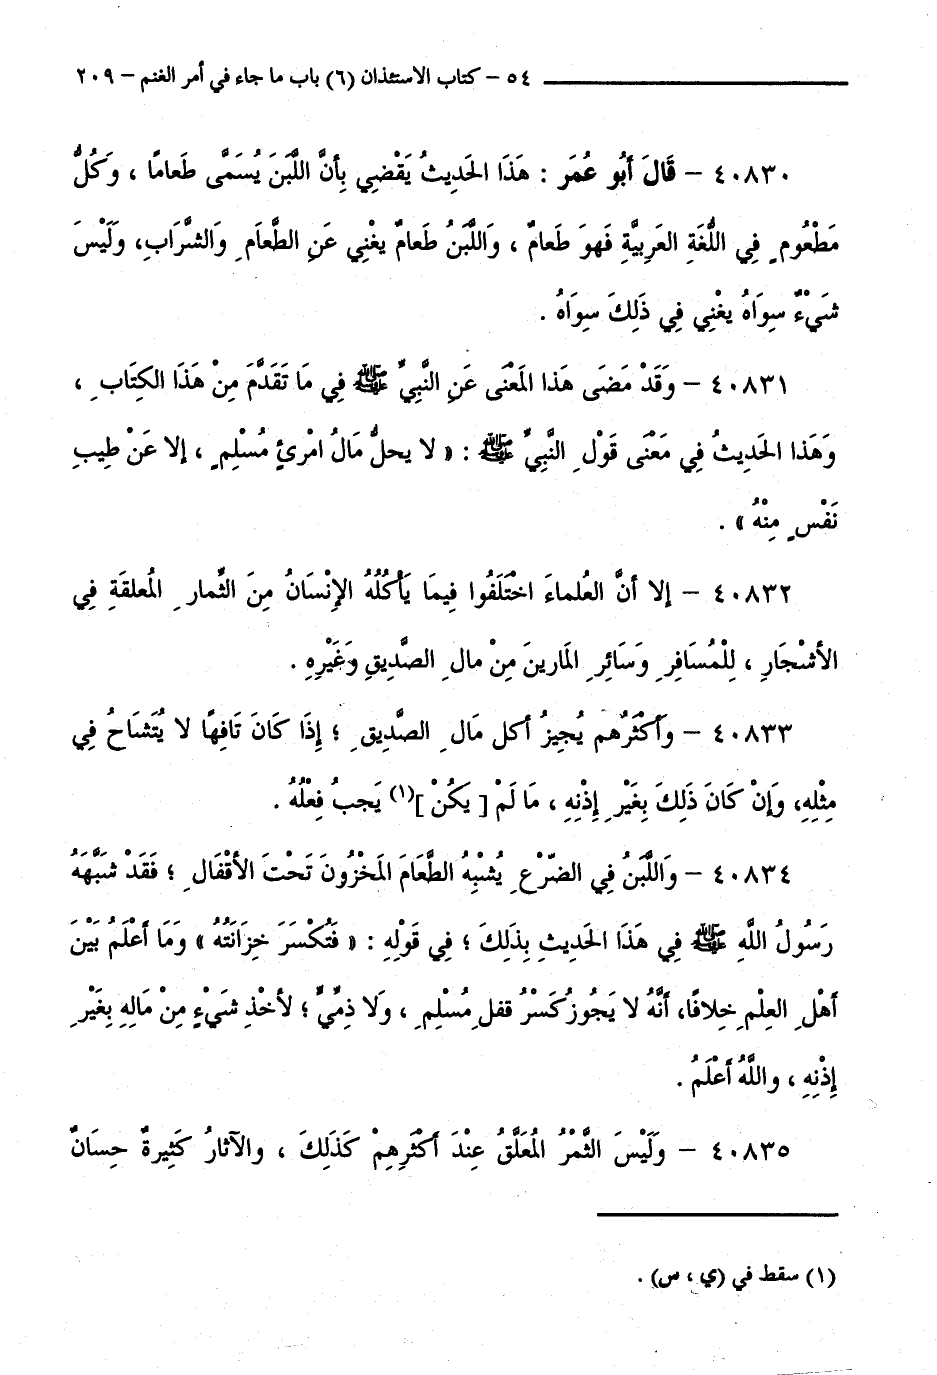 ٥٤ – كتاب الاستئذان (٦) باب ما جاء في أمر الغنم – ٢٠٩
٤٠٨٣٠ – قَالَ أَبُو عُمَر : هَذَا الحَدِيثُ يَقْضِي بِأَنَّ اللَّبَنَ يُسَمَّى طَعامًا ، وَكُلُّ
مَطْعُومٍ فِي اللُّغَةِ العَرَبِيَّةِ فَهوَ طَعامٌ ، وَاللَّبَنُ طَعامٌ يغْنِي عَنِ الطَّعاَمِ وَالشَّرَابِ، وَلَيْسَ
شَيْءٌ سِوَاهُ يغْنِي فِي ذَلِكَ سِوَاهُ .
٤٠٨٣١ – وَقَدْ مَضَى هَذا المَعْنَى عَنِ النَّبِيِّ ﷺ فِي مَا تَقَدَّمَ مِنْ هَذَا الكِتَابِ ،
وَهَذا الحَدِيثُ فِي مَعْنَى قَوْلِ النَّبِيِّ ﷺ : « لا يحلُّ مَالُ امْرئٍ مُسْلِمٍ ، إلا عَنْ طِيبِ
نَفْسٍ مِنْهُ » .
٤٠٨٣٢ – إلا أنَّ العُلماءَ اخْتَلَفُوا فِيمَا يَأكُلُهُ الإنْسَانُ مِنَ الثِّمارِ المُعلقَةِ فِي
الأشْجَارِ ، لِلْمُسَافِرِ وَسَائِرِ المَارينَ مِنْ مالِ الصَّدِيقِ وَغَيْرِهِ .
٤٠٨٣٣ – وَأكْثَرُهُم يُجِيزُ أكل مَالِ الصَّدِيقِ ؛ إِذَا كَانَ تَافِهًا لا يُتَشَاحُ فِي
مِثْلِهِ، وَإنْ كَانَ ذَلِكَ بِغَيْرِ إِذْنِهِ ، مَا لَمْ [ يَكُنْ ](١) يَجبُ فِعْلُهُ .
٤٠٨٣٤ – وَاللَّبَنُ فِي الضّرْعِ يُشْبِهُ الطَّعَامَ المَخْزُونَ تَحْتَ الأقْفَالِ ؛ فَقَدْ شَبَّهَهُ
رَسُولُ اللَّهِ ﷺ فِي هَذَا الحَدِيثِ بِذَلِكَ ؛ فِي قَوْلِهِ : « فَتُكْسَرَ خِزَانَتُهُ » وَمَا أعْلَمُ بَيْنَ
أهْلِ العِلْمِ خِلافًا، أنَّهُ لا يَجُوزُ كَسْرُ قفلِ مُسْلِمٍ ، وَلا ذِمِّيٍّ ؛ لأخْذِ شَيْءٍ مِنْ مَالِهِ بِغَيْرِ
إِذْنِهِ ، واللَّهُ أَعْلَمُ .
٤٠٨٣٥ – وَلَيْسَ الثَّمْرُ المُعَلَّقُ عِنْدَ أَكْثَرِهِمْ كَذَلِكَ ، والآثارُ كَثِيرةٌ حِسَانٌ
(١) سقط في (ي ، س) .